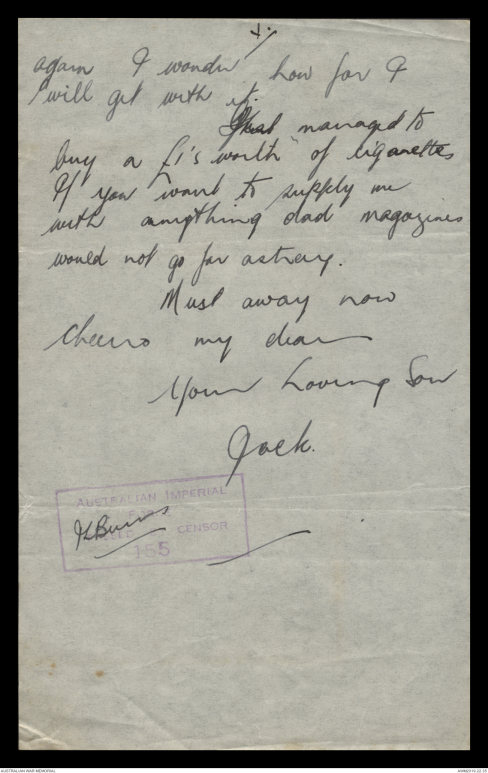 again I wonder how far I
will get with it.
Just managed to
buy a £1's worth of cigarettes
If you want to supply me
with anything dad magazines
would not go far astray.
Must away now
Cheerio my dear
Your Loving Son
Jack.
AUSTRALIAN IMPERIAL
CENSOR
155
AUSTRALIAN WAR MEMORIAL